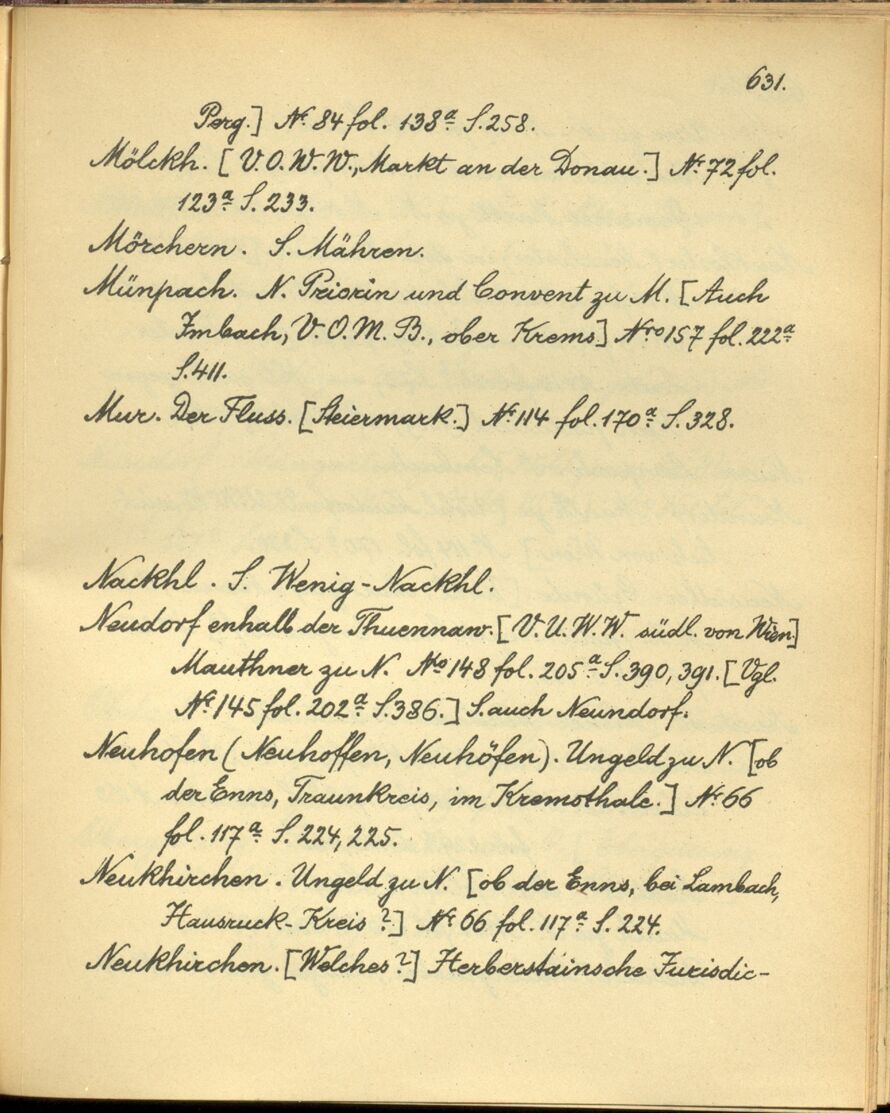 631.
Perg.] Nr. 84 fol. 138a S. 258.
Mölckh. [V.O.W.W., Markt an der Donau.] Nr. 72 fol.
123a S. 233.
Mörchern. S. Mähren.
Münpach. N. Priorin und Convent zu M. [Auch
Imbach, V.O.M.B., ober Krems] Nro 157 fol. 222a
S. 411.
Mur. Der Fluss. [Steiermark.] Nr. 114 fol. 170a S. 328.
Nackhl. S. Wenig-Nackhl.
Neudorf enhalb der Thuennaw. [V.U.W.W. südl. von Wien]
Mauthner zu N. Nro 148 fol. 205a S. 390, 391. [Vgl.
Nr. 145 fol. 202a S. 386.] S. auch Neundorf.
Neuhofen (Neuhoffen, Neuhöfen). Ungeld zu N. [ob
der Enns, Traunkreis, im Kremsthale.] Nr. 66
fol. 117a S. 224, 225.
Neukhirchen. Ungeld zu N. [ob der Enns, bei Lambach,
Hausruck-Kreis?] Nr. 66 fol. 117a S. 224.
Neukhirchen. [Welches?] Herberstainsche Jurisdic-